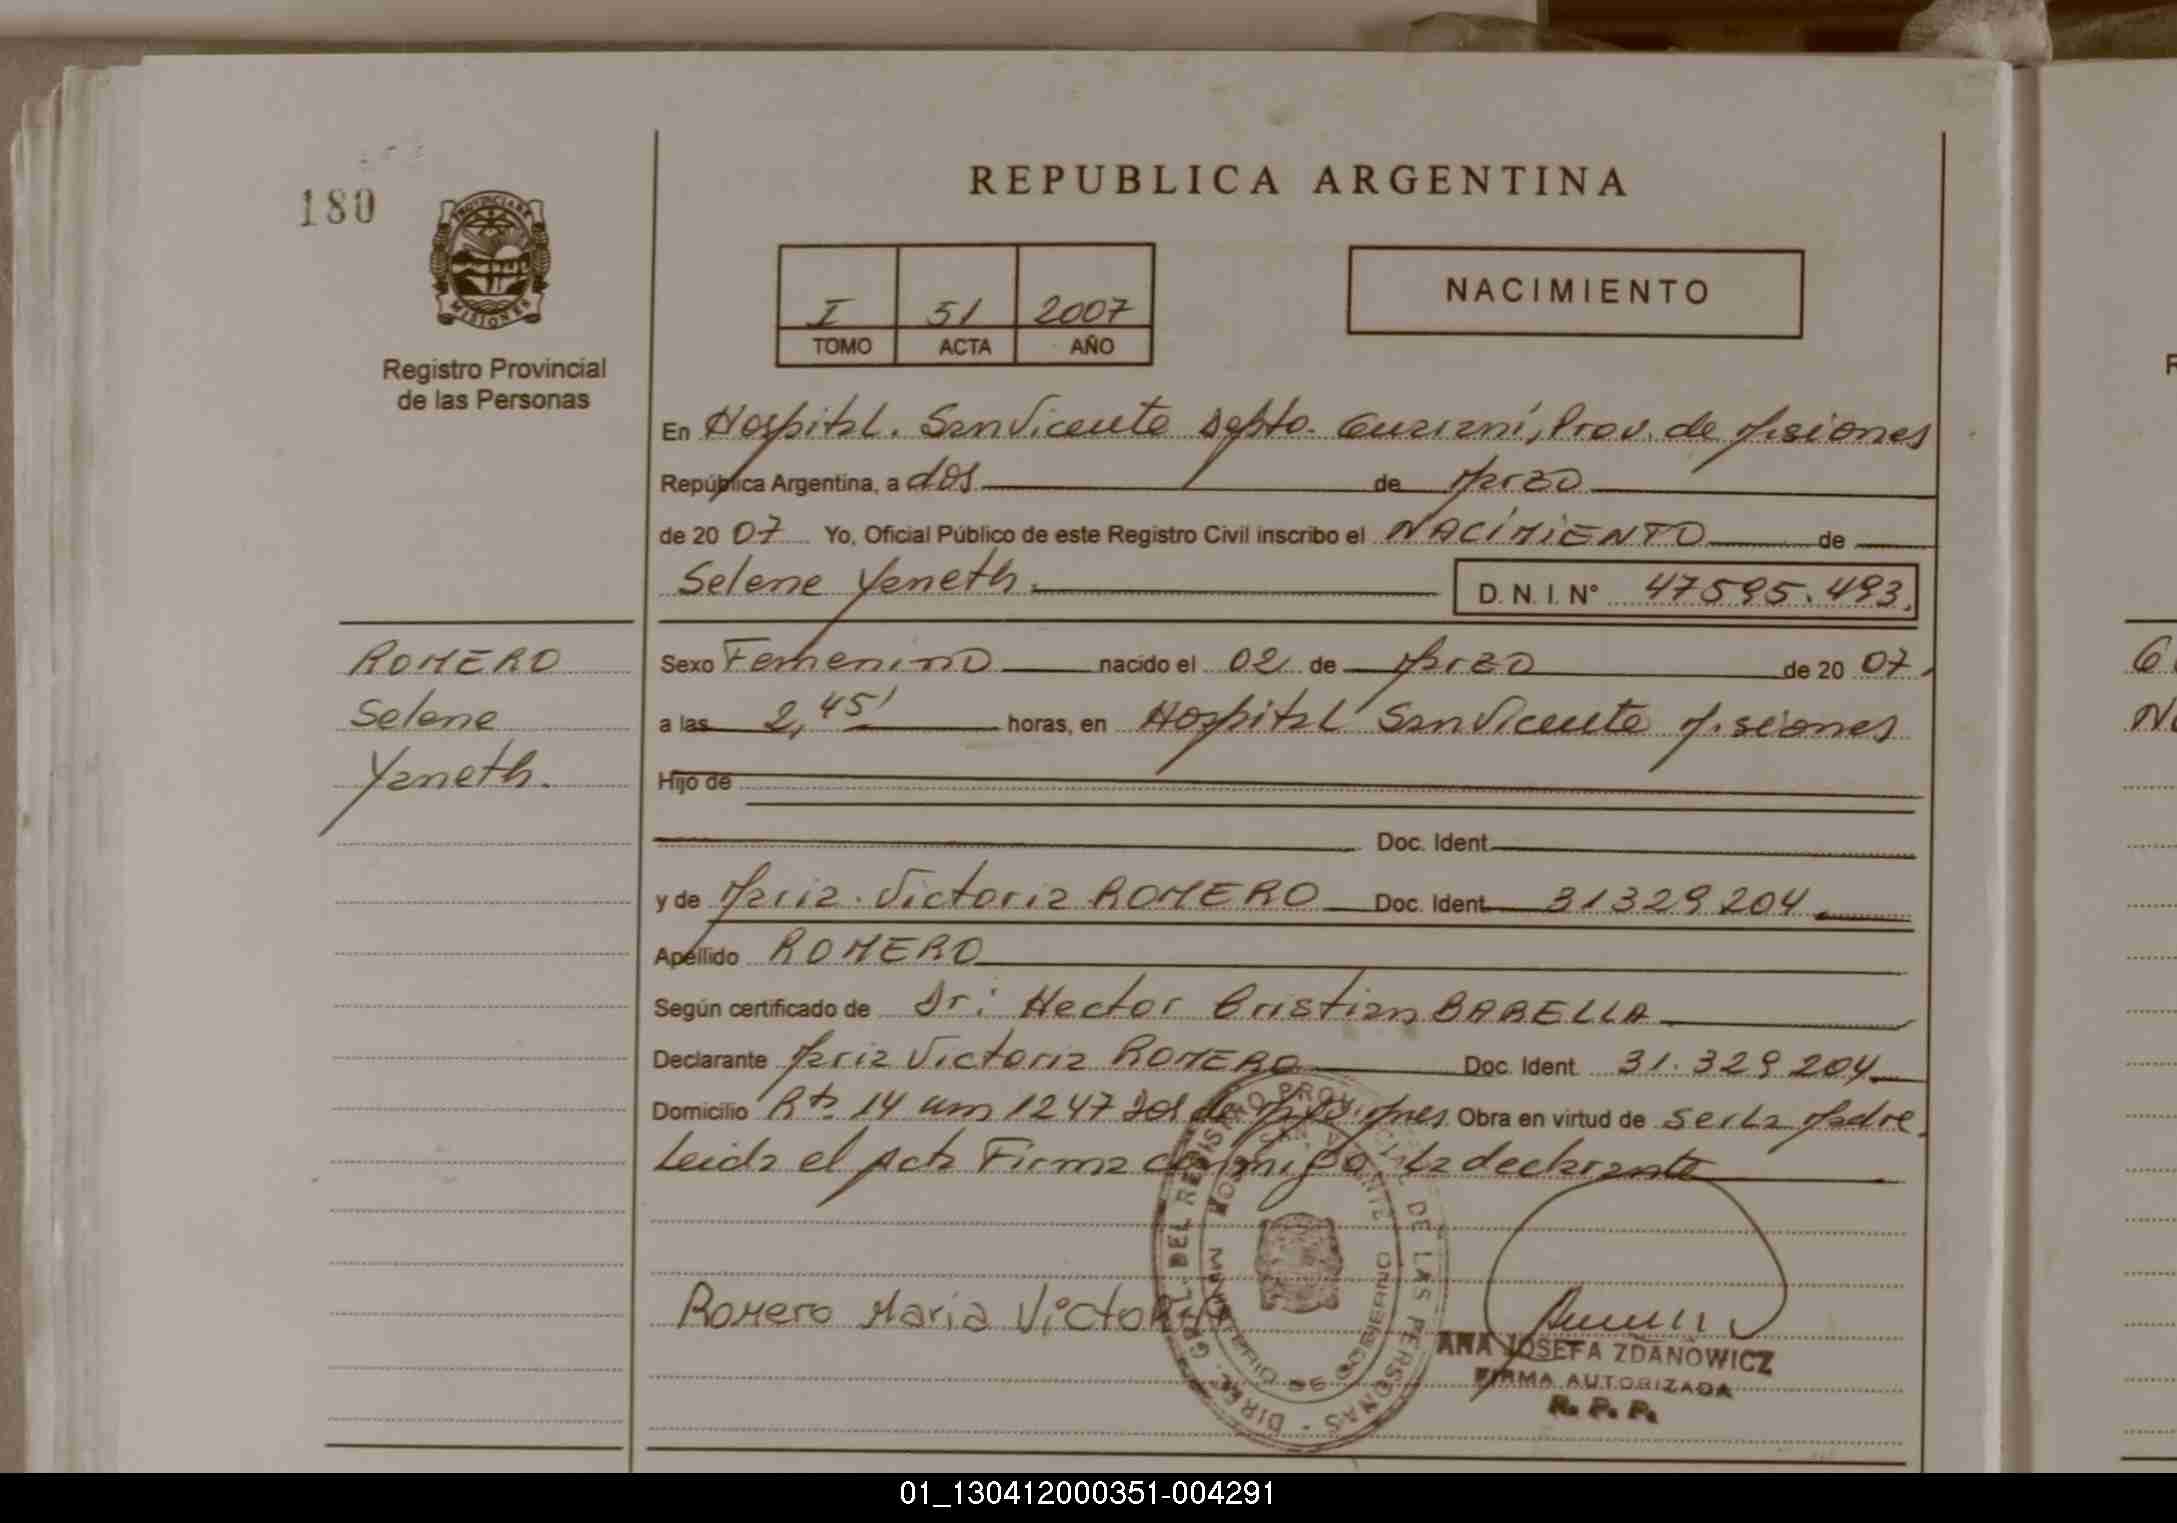 REPUBLICA ARGENTINA
180
PROVINCIA DE
MISIONES
Registro Provincial
de las Personas
NACIMIENTO
I 51 2007
TOMO ACTA AÑO
En Hospital. San Vicente Depto. Guaraní, Prov. de Misiones
República Argentina, a dos de Marzo
de 20 07 Yo, Oficial Público de este Registro Civil inscribo el NACIMIENTO de
Selene Yaneth. D. N. I. Nº 47595.493.
ROMERO
Selene
Yaneth.
Sexo Femenino nacido el 02 de Marzo de 20 07.
a las 2,45' horas, en Hospital San Vicente Misiones
Hijo de
Doc. Ident.
y de Maria. Victoria ROMERO Doc. Ident. 31329204.
Apellido ROMERO
Según certificado de Dr: Hector Cristian BABELLA
Declarante Maria Victoria ROMERO Doc. Ident. 31.329204
Domicilio Rta 14 1247 de Misiones. Obra en virtud de ser la Madre.
Leida el Acta Firma conmigo la declarante
Romero Maria Victoria
DIREC. GRAL. DEL REGISTRO PROVINCIAL DE LAS PERSONAS
HOSP. SAN VICENTE
MINISTERIO DE GOBIERNO
ANA JOSEFA ZDANOWICZ
FIRMA AUTORIZADA
R. P. P.
01_130412000351-004291